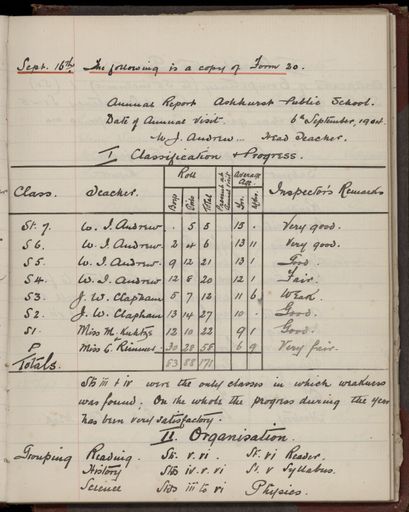 Sept. 16th The following is a copy of Form 20.
Annual Report Ashhurst Public School.
Date of Annual Visit. 6th September, 1904.
W. J. Andrew... Head Teacher.
I Classification & Progress.
Class. Teacher. Roll Average Age. Inspector's Remarks
Boys Girls Total Present at Annual Visit Yrs. Mths.
St. 7. W. J. Andrew . 5 5 15 . Very good.
S 6. W. J. Andrew 2 4 6 13 11 Very good.
S 5. W. J. Andrew. 9 12 21 13 1 Good.
S 4. W. J. Andrew 12 8 20 12 1 Fair.
S 3. J. W. Clapham 5 7 12 11 6 Weak.
S 2. J. W. Clapham 13 14 27 10 . Good.
S 1. Miss M. 12 10 22 9 1 Good.
P Miss 30 28 58 6 9 Very fair.
Totals. 83 88 171
Stds iii & iv were the only classes in which weakness
was found. On the whole the progress during the year
has been very satisfactory.
II. Organisation.
Grouping Reading. Sts. v. vi St. vi Reader.
History Stds iv. v. vi St. v Syllabus.
Science Stds iii to vi Physics.